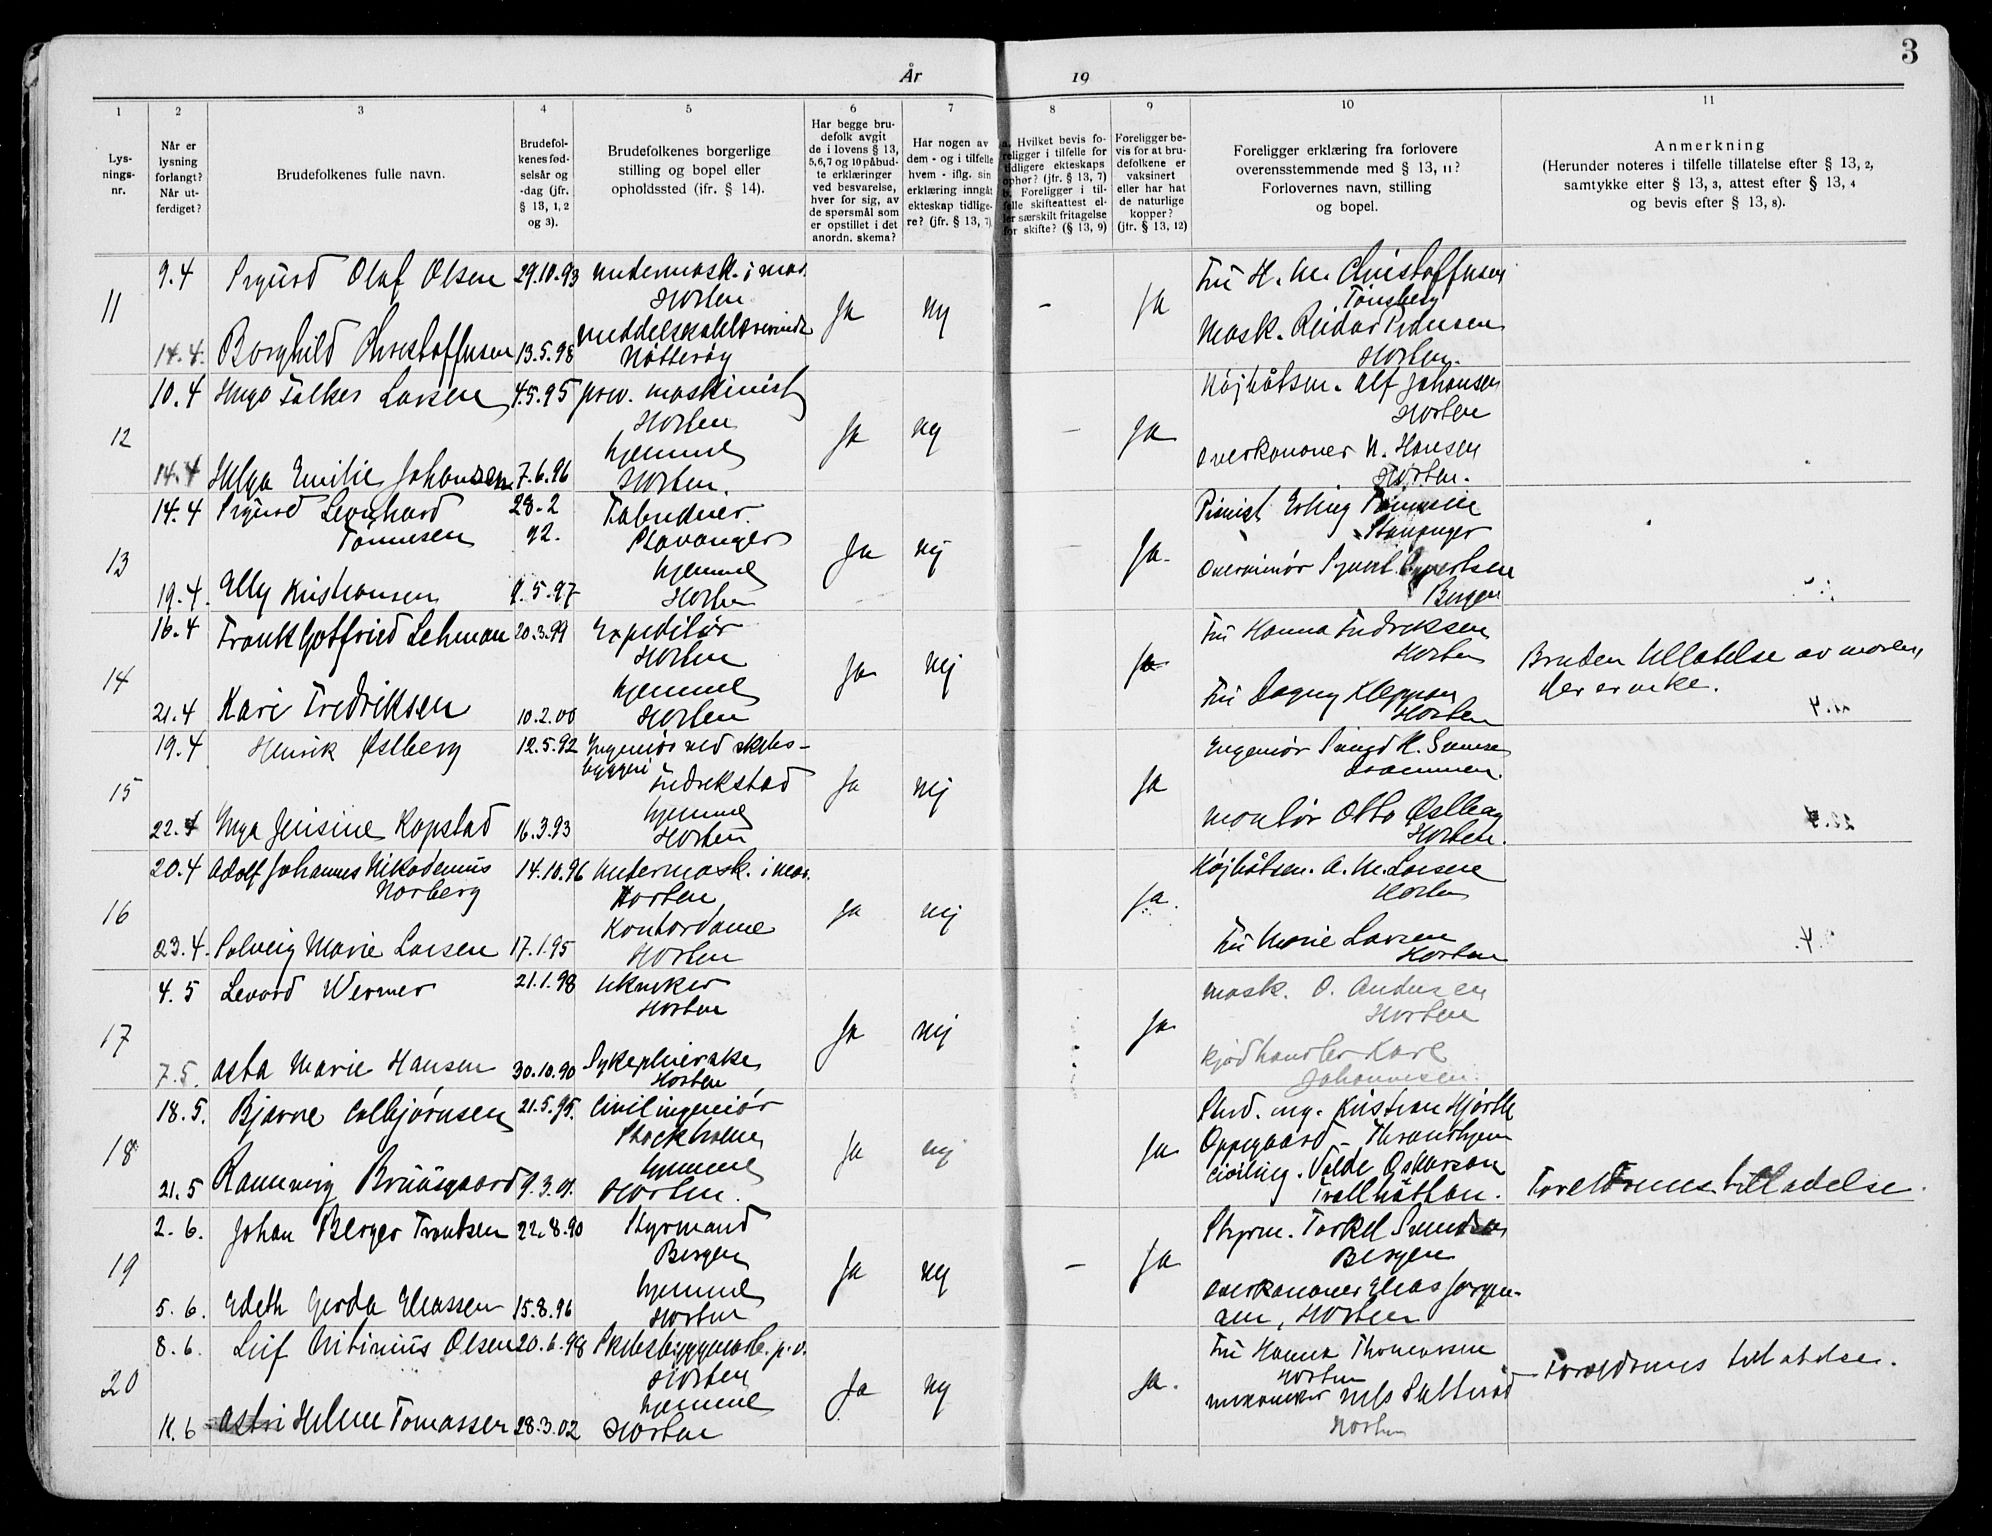 3
År 19
1 2 3 4 5 6 7 8 9 10 11
Lys-
nings-
nr.
Når er
lysning
forlangt?
Når ut-
ferdiget?
Brudefolkenes fulle navn.
Brudefol-
kenes fød-
selsår og
-dag (jfr.
§ 13, 1, 2
og 3).
Brudefolkenes borgerlige
stilling og bopel eller
opholdssted (jfr. § 14).
Har begge bru-
defolk avgit
de i lovens § 13,
5,6,7 og 10 påbud-
te erklæringer
ved besvarelse,
hver for sig, av
de spørsmål som
er opstillet i det
anordn. skema?
Har nogen av
dem - og i tilfelle
hvem - iflg. sin
erklæring inngåt
ekteskap tidlige-
re? (jfr. § 13, 7)
a. Hvilket bevis fo-
religger i tilfelle for
tidligere ekteskaps
ophør? (jfr. § 13, 7)
b. Foreligger i til-
felle skifteattest el-
ler særskilt fritagelse
for skifte? (§ 13, 9)
Foreligger be-
vis for at bru-
defolkene er
vaksinert
eller har hat
de naturlige
kopper?
(jfr. § 13, 12)
Foreligger erklæring fra forlovere
overensstemmende med § 13, 11?
Forlovernes navn, stilling
og bopel.
Anmerkning
(Herunder noteres i tilfelle tillatelse efter § 13, 2,
samtykke efter § 13, 3, attest efter § 13, 4
og bevis efter § 13, 8).
9.4 Sigurd Olaf Olsen 29.10.93 Undermask. i mar. Fru H. M. Christoffersen
Horten Tønsberg
11 Ja nej - Ja
Mask. Reidar Pedersen
14.4. Borghild Christoffersen 13.5.98 Nøtterøy Horten.
10.4 Hugo Falker Larsen 4.5.95 prov. maskinist Højbåtsm. Alf Johansen
Horten Horten
12 Ja nej - Ja
hjemme Overkanoner N. Hansen
14.4 Helga Emilie Johansen 7.6.96 Horten. Horten.
14.4 Sigurd Leonhard 28.2 Pianist Erling Tønnesen
Tønnesen 92. Stavanger Stavanger
13 Ja nej - Ja.
hjemme Overminør
19.4. Elly Kristiansen 9.5.97 Horten Bergen
16.4 Frank Gotfried Lehman 20.3.99 Expeditør Fru Hanna Fredriksen
Horten Horten
14 Ja nej Ja Bruden tillatelse av moren,
hjemme Fru Dagny der er enke.
21.4 Kari Fredriksen 10.2.00 Horten Horten
19.4 Henrik Østberg 12.5.92 Ingeniør ved skibs-
byggeri Ingeniør
Fredrikstad Drammen.
15 Ja nej Ja
hjemme Montør Otto Østberg
22.4 Inga Jensine Kopstad 16.3.93 Horten Horten.
20.4 Adolf Johannes Nikodemus 14.10.96 Undermask. i mar. Højbåtsm. A. M. Larsen
Norberg Horten Horten
16 Ja nej Ja.
Kontordame Fru Marie Larsen
23.4. Solveig Marie Larsen 17.1.95 Horten Horten
4.5 Levard Werner 21.1.98 Mask. O. Andersen
Horten Horten
17 Ja nej Ja
Kjødhandler Karl
7.5. Asta Marie Hansen 30.10.90 Sykepleierske Johannesen.
Horten
18.5. Bjarne Colbjørnsen 21.5.95. Civilingeniør Stud. ing. Kristian Hjorth
Stockholm Oppegaard - Throndhjem
18 Ja nej Ja
hjemme Civiling. Valde Oskarson
21.5 Rannveig Bruusgaard 9.3.01. Horten. Trollhättan. Foreldrenes tilladelse.
2.6. Johan Berger Trondsen 22.8.90 Styrmand Styrm. Torkel Svendsen
Bergen Bergen
19 Ja nej - Ja
hjemme Overkanoner Elias Jørgen-
5.6. Edith Gerda Eliassen 15.8.96 Horten sen, Horten
8.6. Leif Olsen 20.6.98 Fru Hanna Thomassen
Horten Horten
20 Ja nej Ja. Foreldrenes tillatelse.
hjemme
11.6 Astri Helene Tomassen 28.3.02 Horten Horten